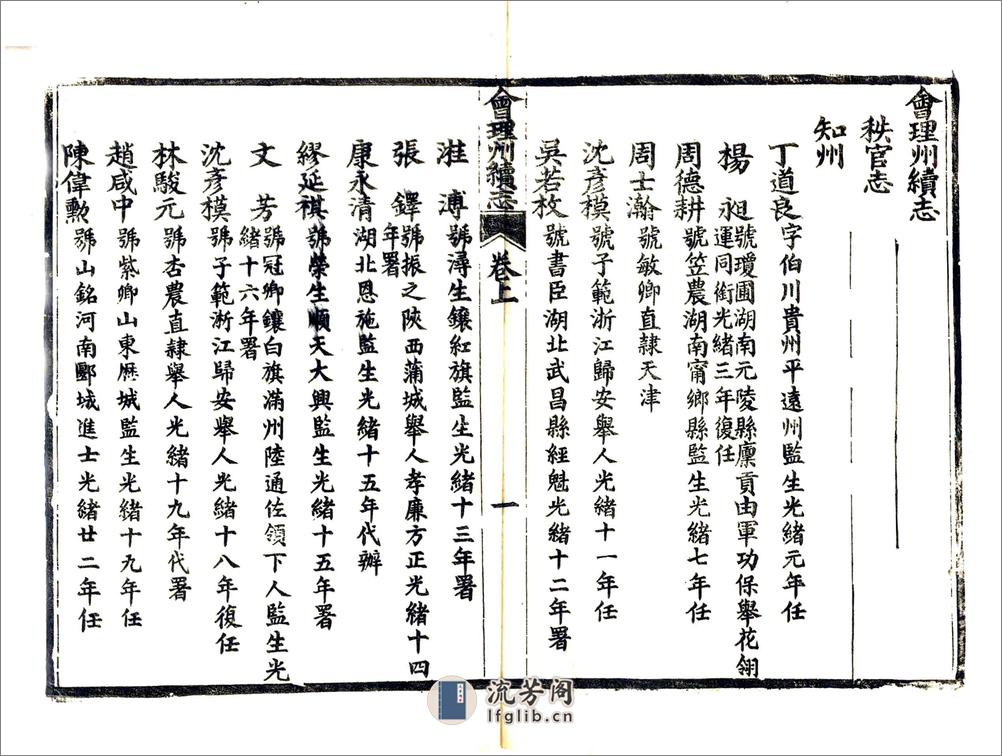 會理州續志
秩官志
知州
丁道良字伯川貴州平遠州監生光緒元年任
楊　昶號瓊圃湖南元陵縣廩貢由軍功保舉花翎
運同銜光緒三年復任
周德耕號笠農湖南甯鄉縣監生光緒七年任
周士瀚號敏卿直隸天津
沈彥模號子範浙江歸安舉人光緒十一年任
吳若枚號書臣湖北武昌縣經魁光緒十二年署
會理州續志
卷上
一
溥號潯生鑲紅旗監生光緒十三年署
張　鐸號振之陝西蒲城舉人孝廉方正光緒十四
年署
康永清湖北恩施監生光緒十五年代辦
繆延祺號榮生順天大興監生光緒十五年署
文　芳號冠卿鑲白旗滿州陸通佐領下人監生光
緒十六年署
沈彥模號子範浙江歸安舉人光緒十八年復任
林駿元號杏農直隸舉人光緒十九年代署
趙咸中號紫卿山東歷城監生光緒十九年任
陳偉勳號山銘河南郾城進士光緒廿二年任
流芳阁
lfglib.cn